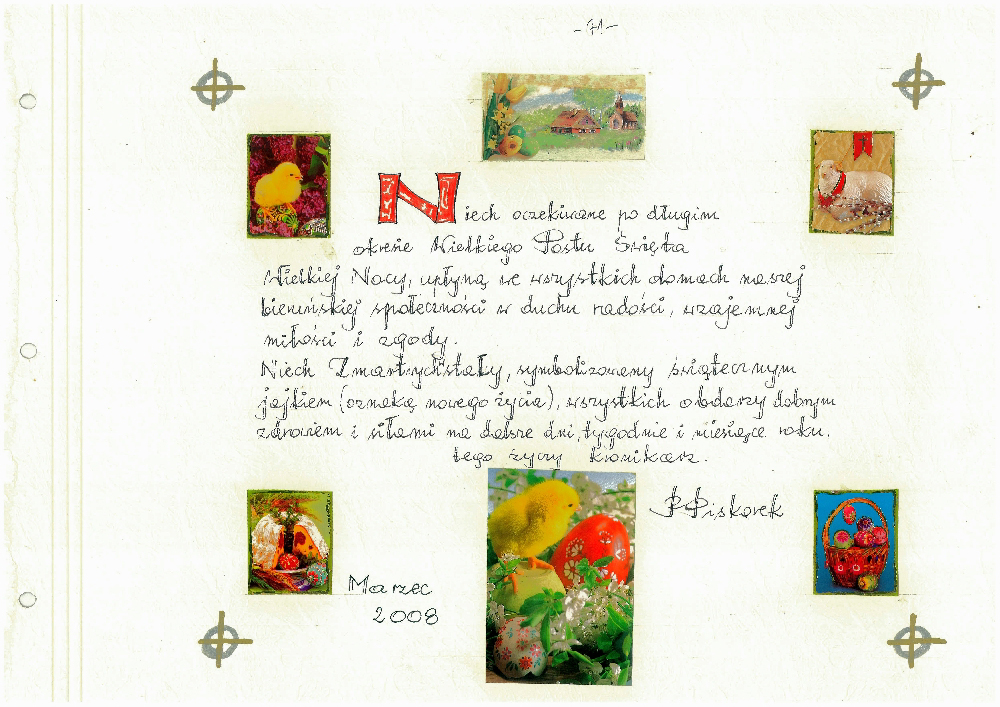 - 71 -
Niech oczekiwane po długim
okresie Wielkiego Postu Święta
Wielkiej Nocy, upłyną we wszystkich domach naszej
bieruńskiej społeczności w duchu radości, wzajemnej
miłości i zgody.
Niech Zmartwychstały, symbolizowany świątecznym
jajkiem (oznaką nowego życia), wszystkich obdarzy dobrym
zdrowiem i siłami na dalsze dni, tygodnie i miesiące roku.
tego życzy kronikarz.
Piskorek
Marzec
2008